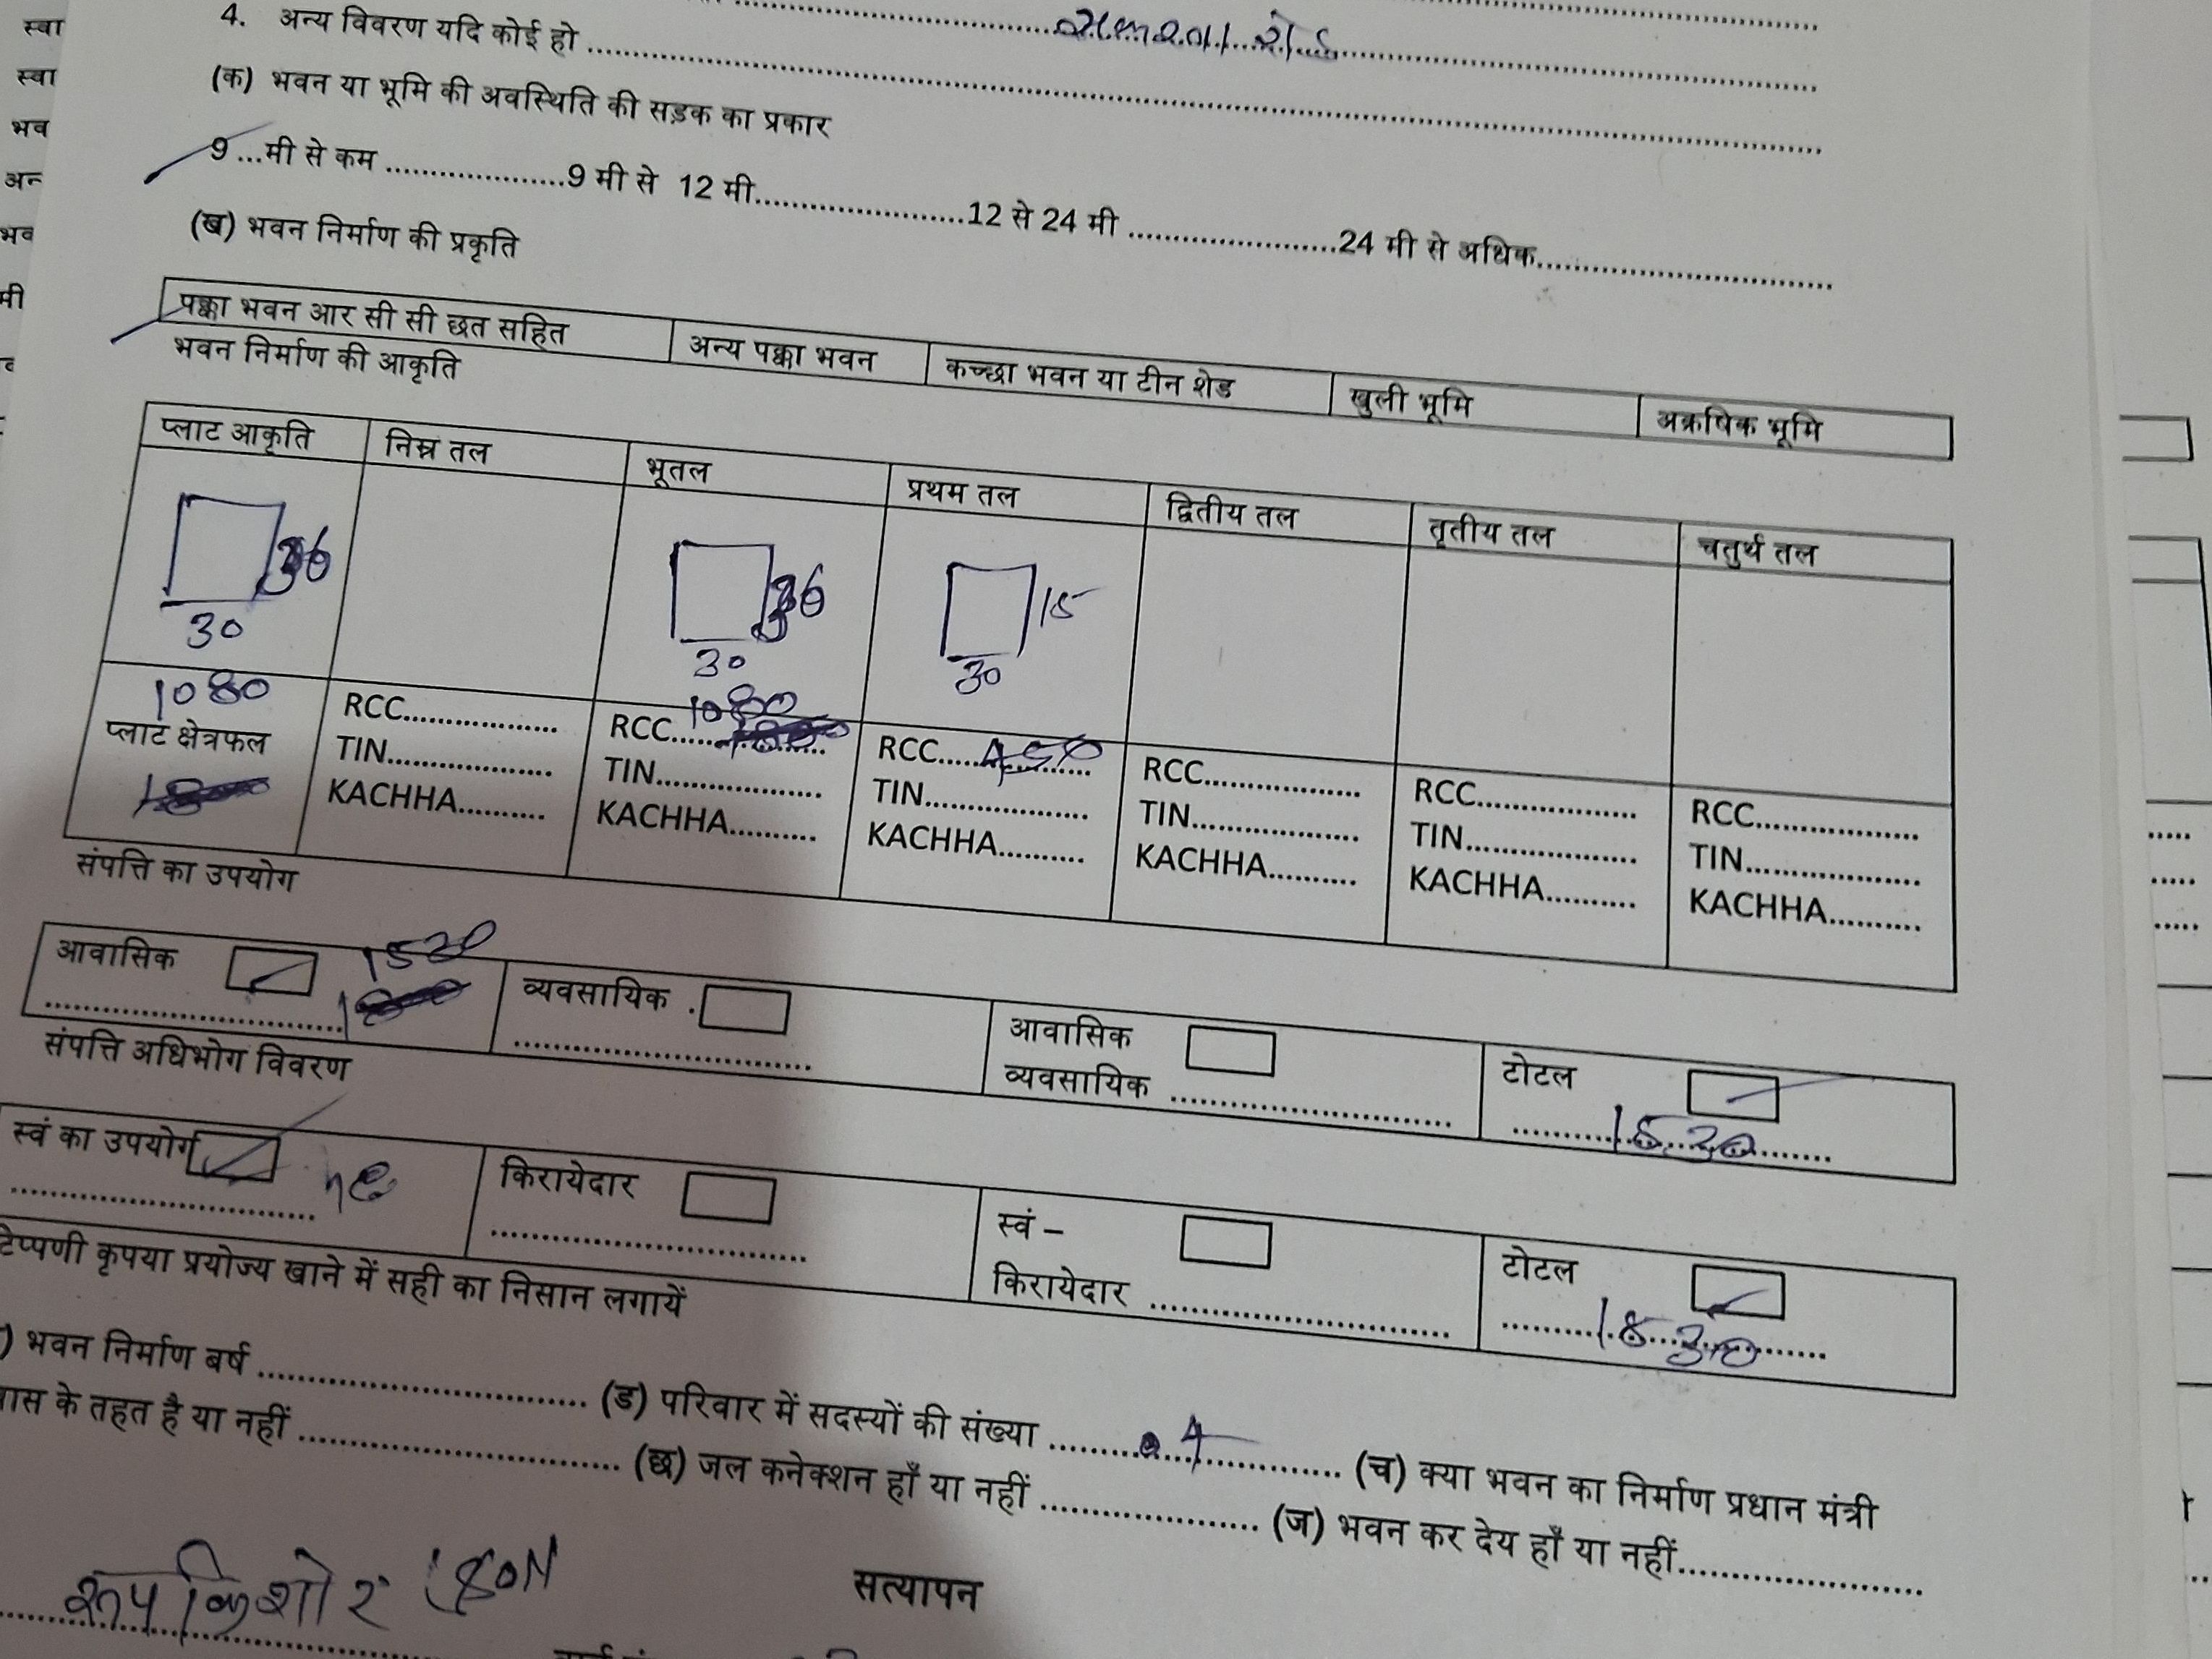 स्वा
स्वा
भव
अन
भव
मी
4. अन्य विवरण यदि कोई हो ............................................................
(क) भवन या भूमि की अवस्थिति की सड़क का प्रकार
9...मी से कम ....................9 मी से 12 मी.......................12 से 24 मी .......................24 मी से अधिक.................................
(ख) भवन निर्माण की प्रकृति
पक्का भवन आर सी सी छत सहित अन्य पक्का भवन कच्छा भवन या टीन शेड खुली भूमि अक्रषिक भूमि
भवन निर्माण की आकृति
प्लाट आकृति निम्न तल भूतल प्रथम तल द्वितीय तल तृतीय तल चतुर्थ तल
36 36 15
30 30 30
1080 1080 450
प्लाट क्षेत्रफल RCC................. RCC................. RCC................. RCC................. RCC................. RCC.................
TIN................... TIN................... TIN................... TIN................... TIN................... TIN...................
KACHHA.......... KACHHA.......... KACHHA.......... KACHHA.......... KACHHA.......... KACHHA..........
संपत्ति का उपयोग
आवासिक 1530 व्यवसायिक . आवासिक व्यवसायिक .............................. टोटल 1530
संपत्ति अधिभोग विवरण
स्वं का उपयोग किरायेदार स्वं – किरायेदार ................................ टोटल 1530
टिप्पणी कृपया प्रयोज्य खाने में सही का निसान लगायें
) भवन निर्माण बर्ष .................................. (ड) परिवार में सदस्यों की संख्या ............4............... (च) क्या भवन का निर्माण प्रधान मंत्री
वास के तहत है या नहीं ................................. (छ) जल कनेक्शन हाँ या नहीं ...................... (ज) भवन कर देय हाँ या नहीं.........................
रूप किशोर
सत्यापन